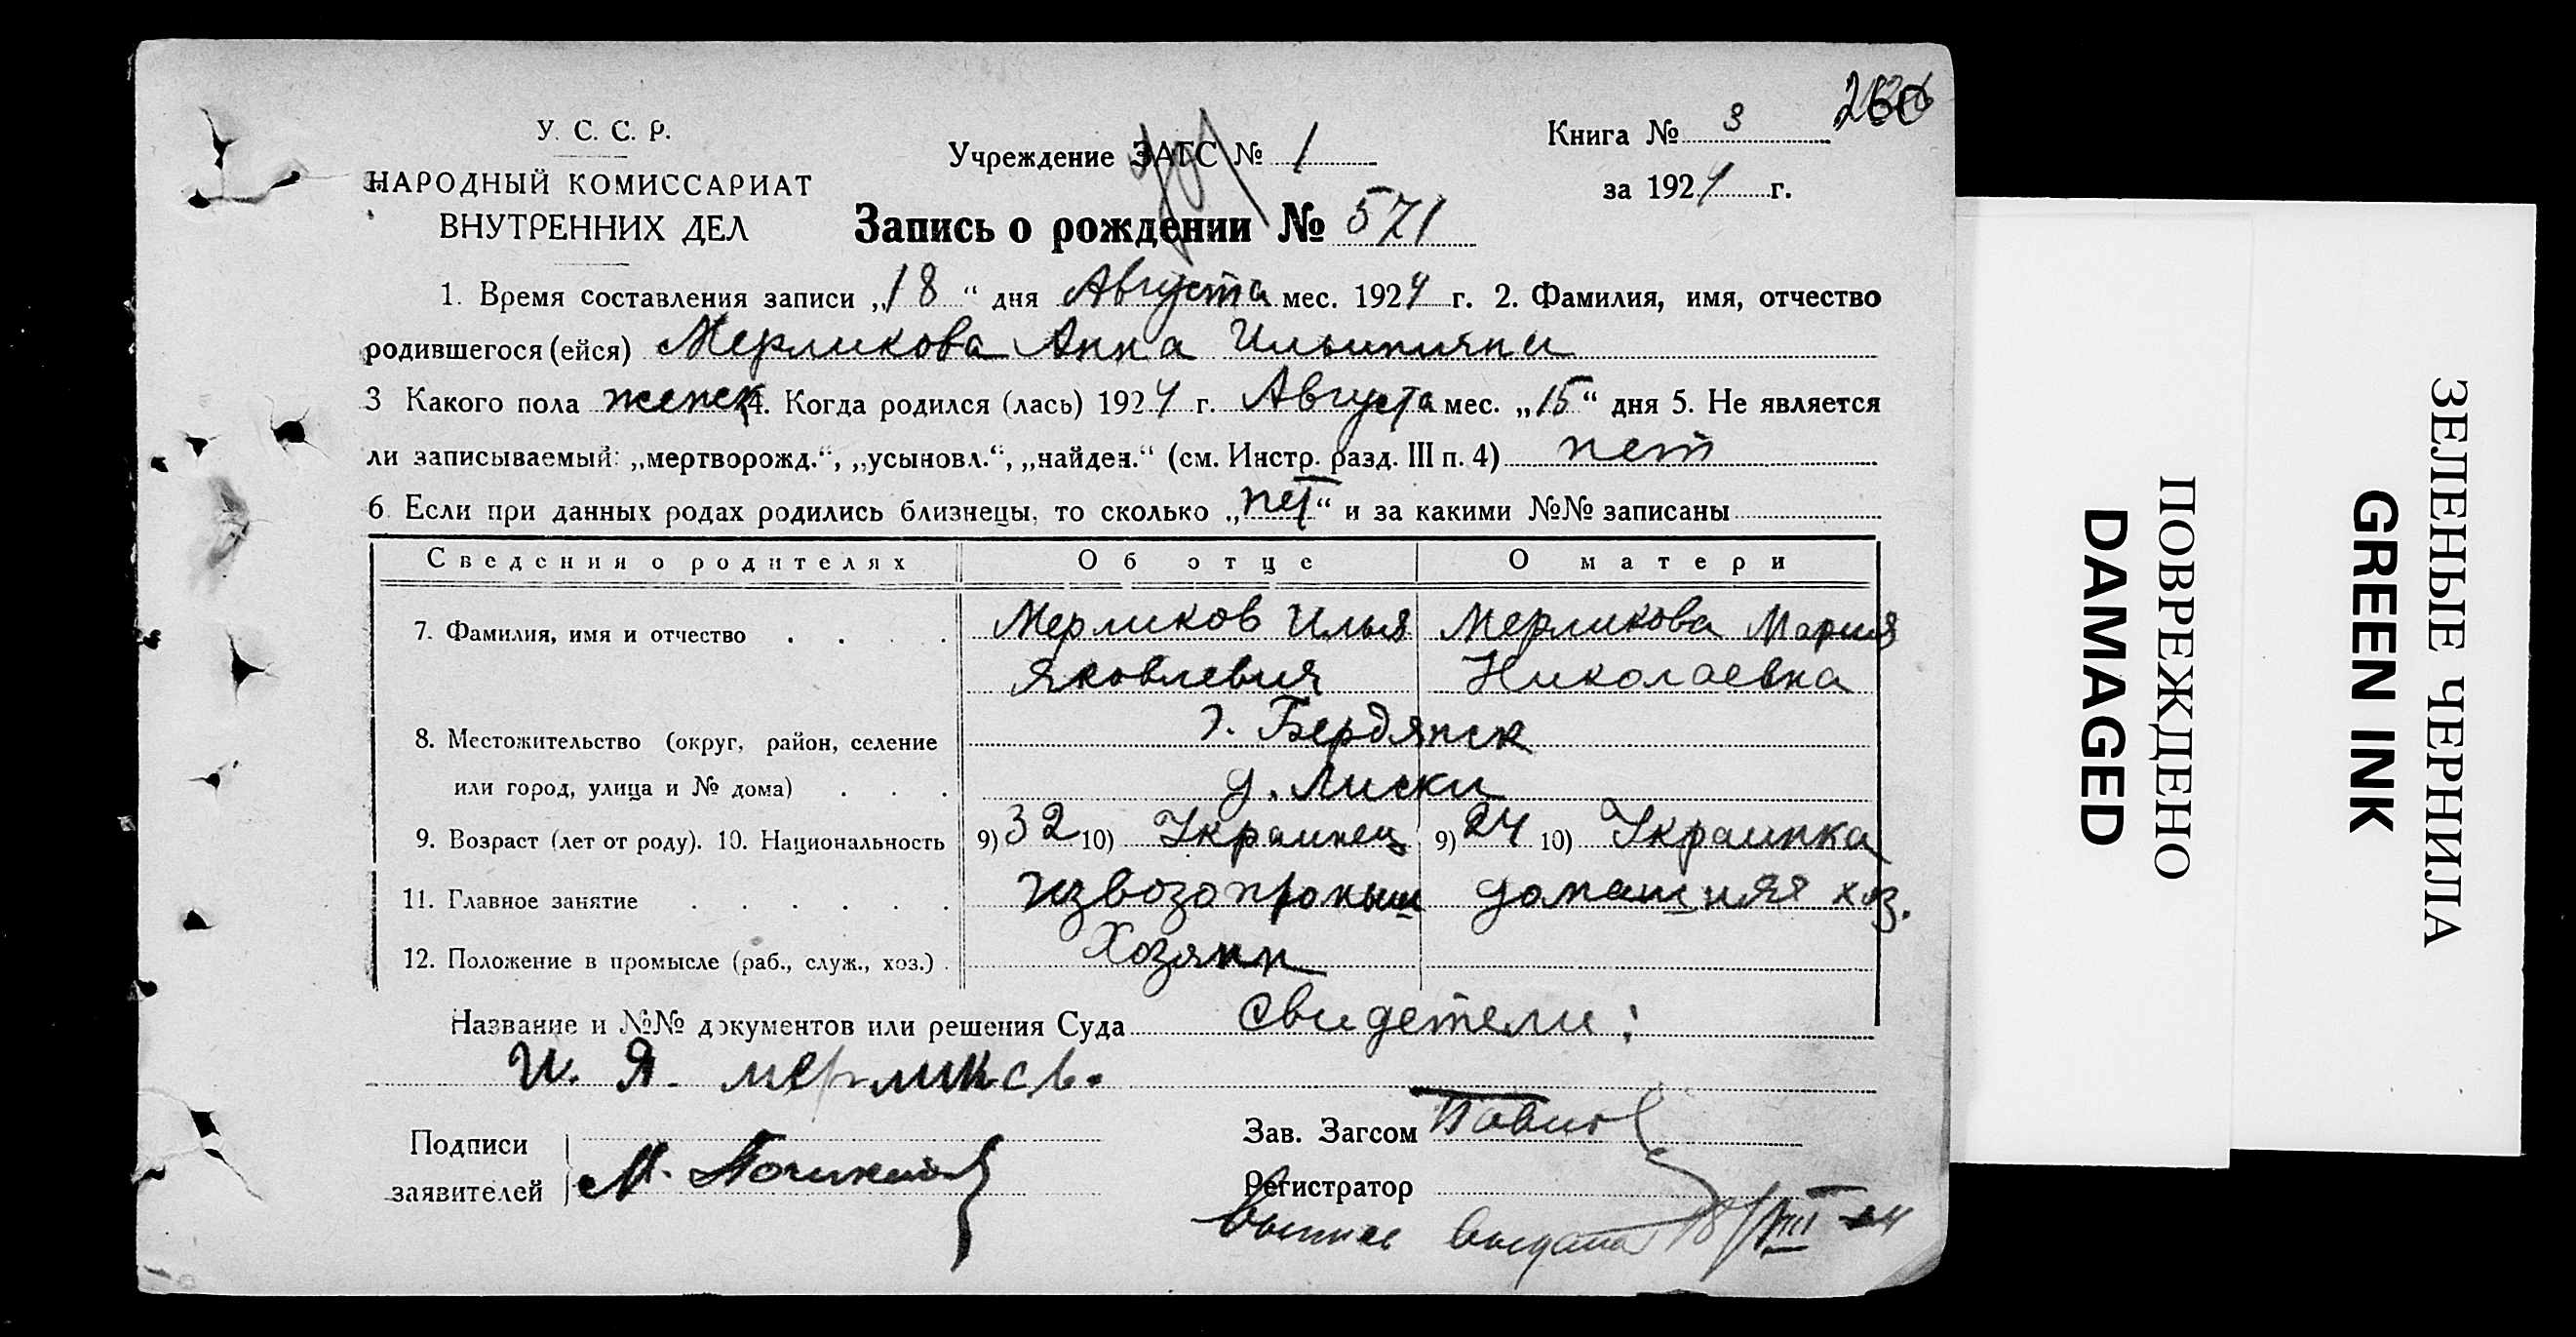 У. С. С. Р.
НАРОДНЫЙ КОМИССАРИАТ
ВНУТРЕННИХ ДЕЛ
Учреждение ЗАГС № 1
Книга № 3
за 1924 г.
Запись о рождении № 571
1. Время составления записи „18“ дня Августа мес. 1924 г. 2. Фамилия, имя, отчество
родившегося (ейся) Мерликова Анна
3 Какого пола женск 4. Когда родился (лась) 1924 г. Августа мес. „15“ дня 5. Не является
ли записываемый: „мертворожд.“, „усыновл.“, „найден.“ (см. Инстр. разд. III п. 4) нет
6. Если при данных родах родились близнецы, то сколько „нет“ и за какими №№ записаны
Сведения о родителях Об отце О матери
7. Фамилия, имя и отчество . . . . Мерликов Илья Мерликова Мария
Яковлевич Николаевна
г. Бердянск
8. Местожительство (округ, район, селение
или город, улица и № дома) . . . д. Лиски
9. Возраст (лет от роду). 10. Национальность 9) 32 10) Украинец 9) 24 10) Украинка
11. Главное занятие . . . . . . извозопромыш домашняя хоз.
12. Положение в промысле (раб., служ., хоз.) . Хозяин
Название и №№ документов или решения Суда Свидетели:
И. Я. Мерликов.
Подписи
заявителей
М.
Зав. Загсом
Регистратор
выпись выдана 18/VIII-24
ПОВРЕЖДЕНО
DAMAGED
ЗЕЛЕНЫЕ ЧЕРНИЛА
GREEN INK